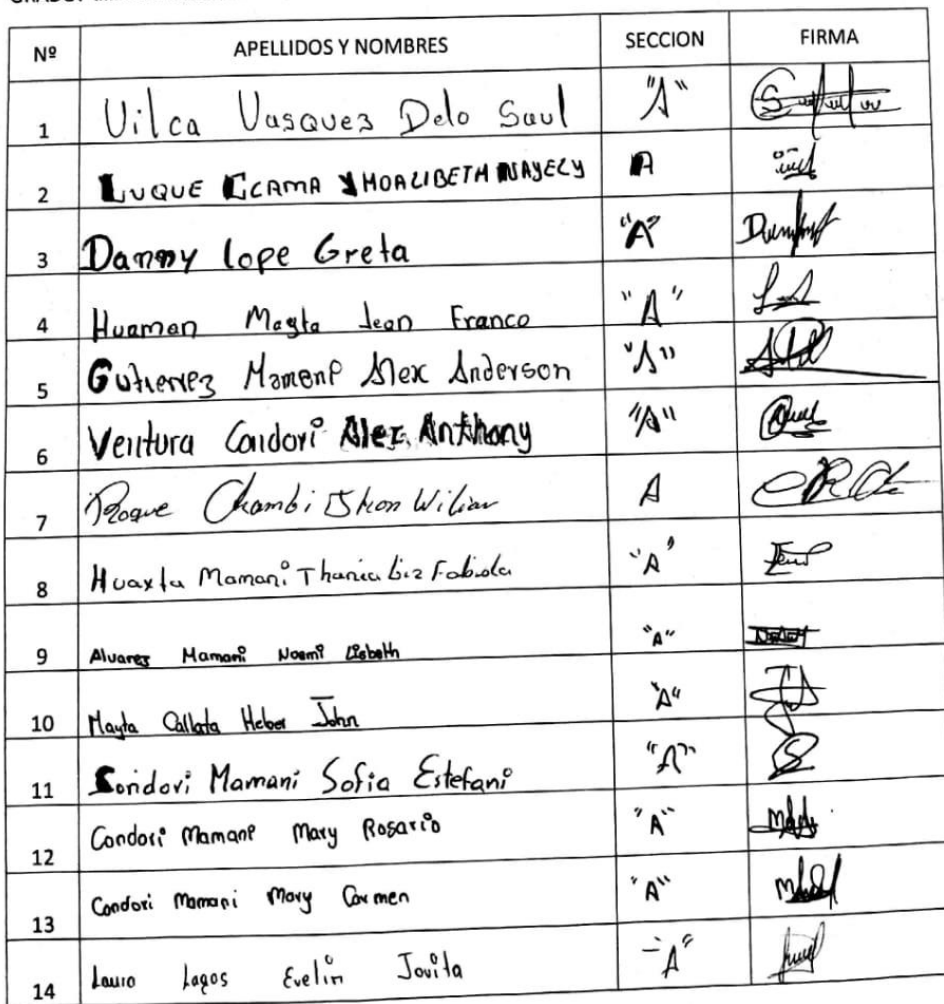 Nº APELLIDOS Y NOMBRES SECCION FIRMA
1 Vilca Vasquez Delo Saul "A"
2 LUQUE CCAMA YHOALIBETH NAYELY A
3 Danny lope Greta "A"
4 Huaman Mayta Jean Franco "A"
5 Gutierrez Mamani Alex Anderson "A"
6 Ventura Condori Alex Anthony "A"
7 Roque Chambi Jhon Wilian A
8 Huaxta Mamani Thania Liz Fabiola "A"
9 Alvarez Mamani Noemi Lisbeth "A"
10 Mayta Callata Heber John "A"
11 Condori Mamani Sofia Estefani "A"
12 Condori Mamani Mary Rosario "A"
13 Condori Mamani Mary Carmen "A"
14 Lauro Lagos Evelin Jovita "A"